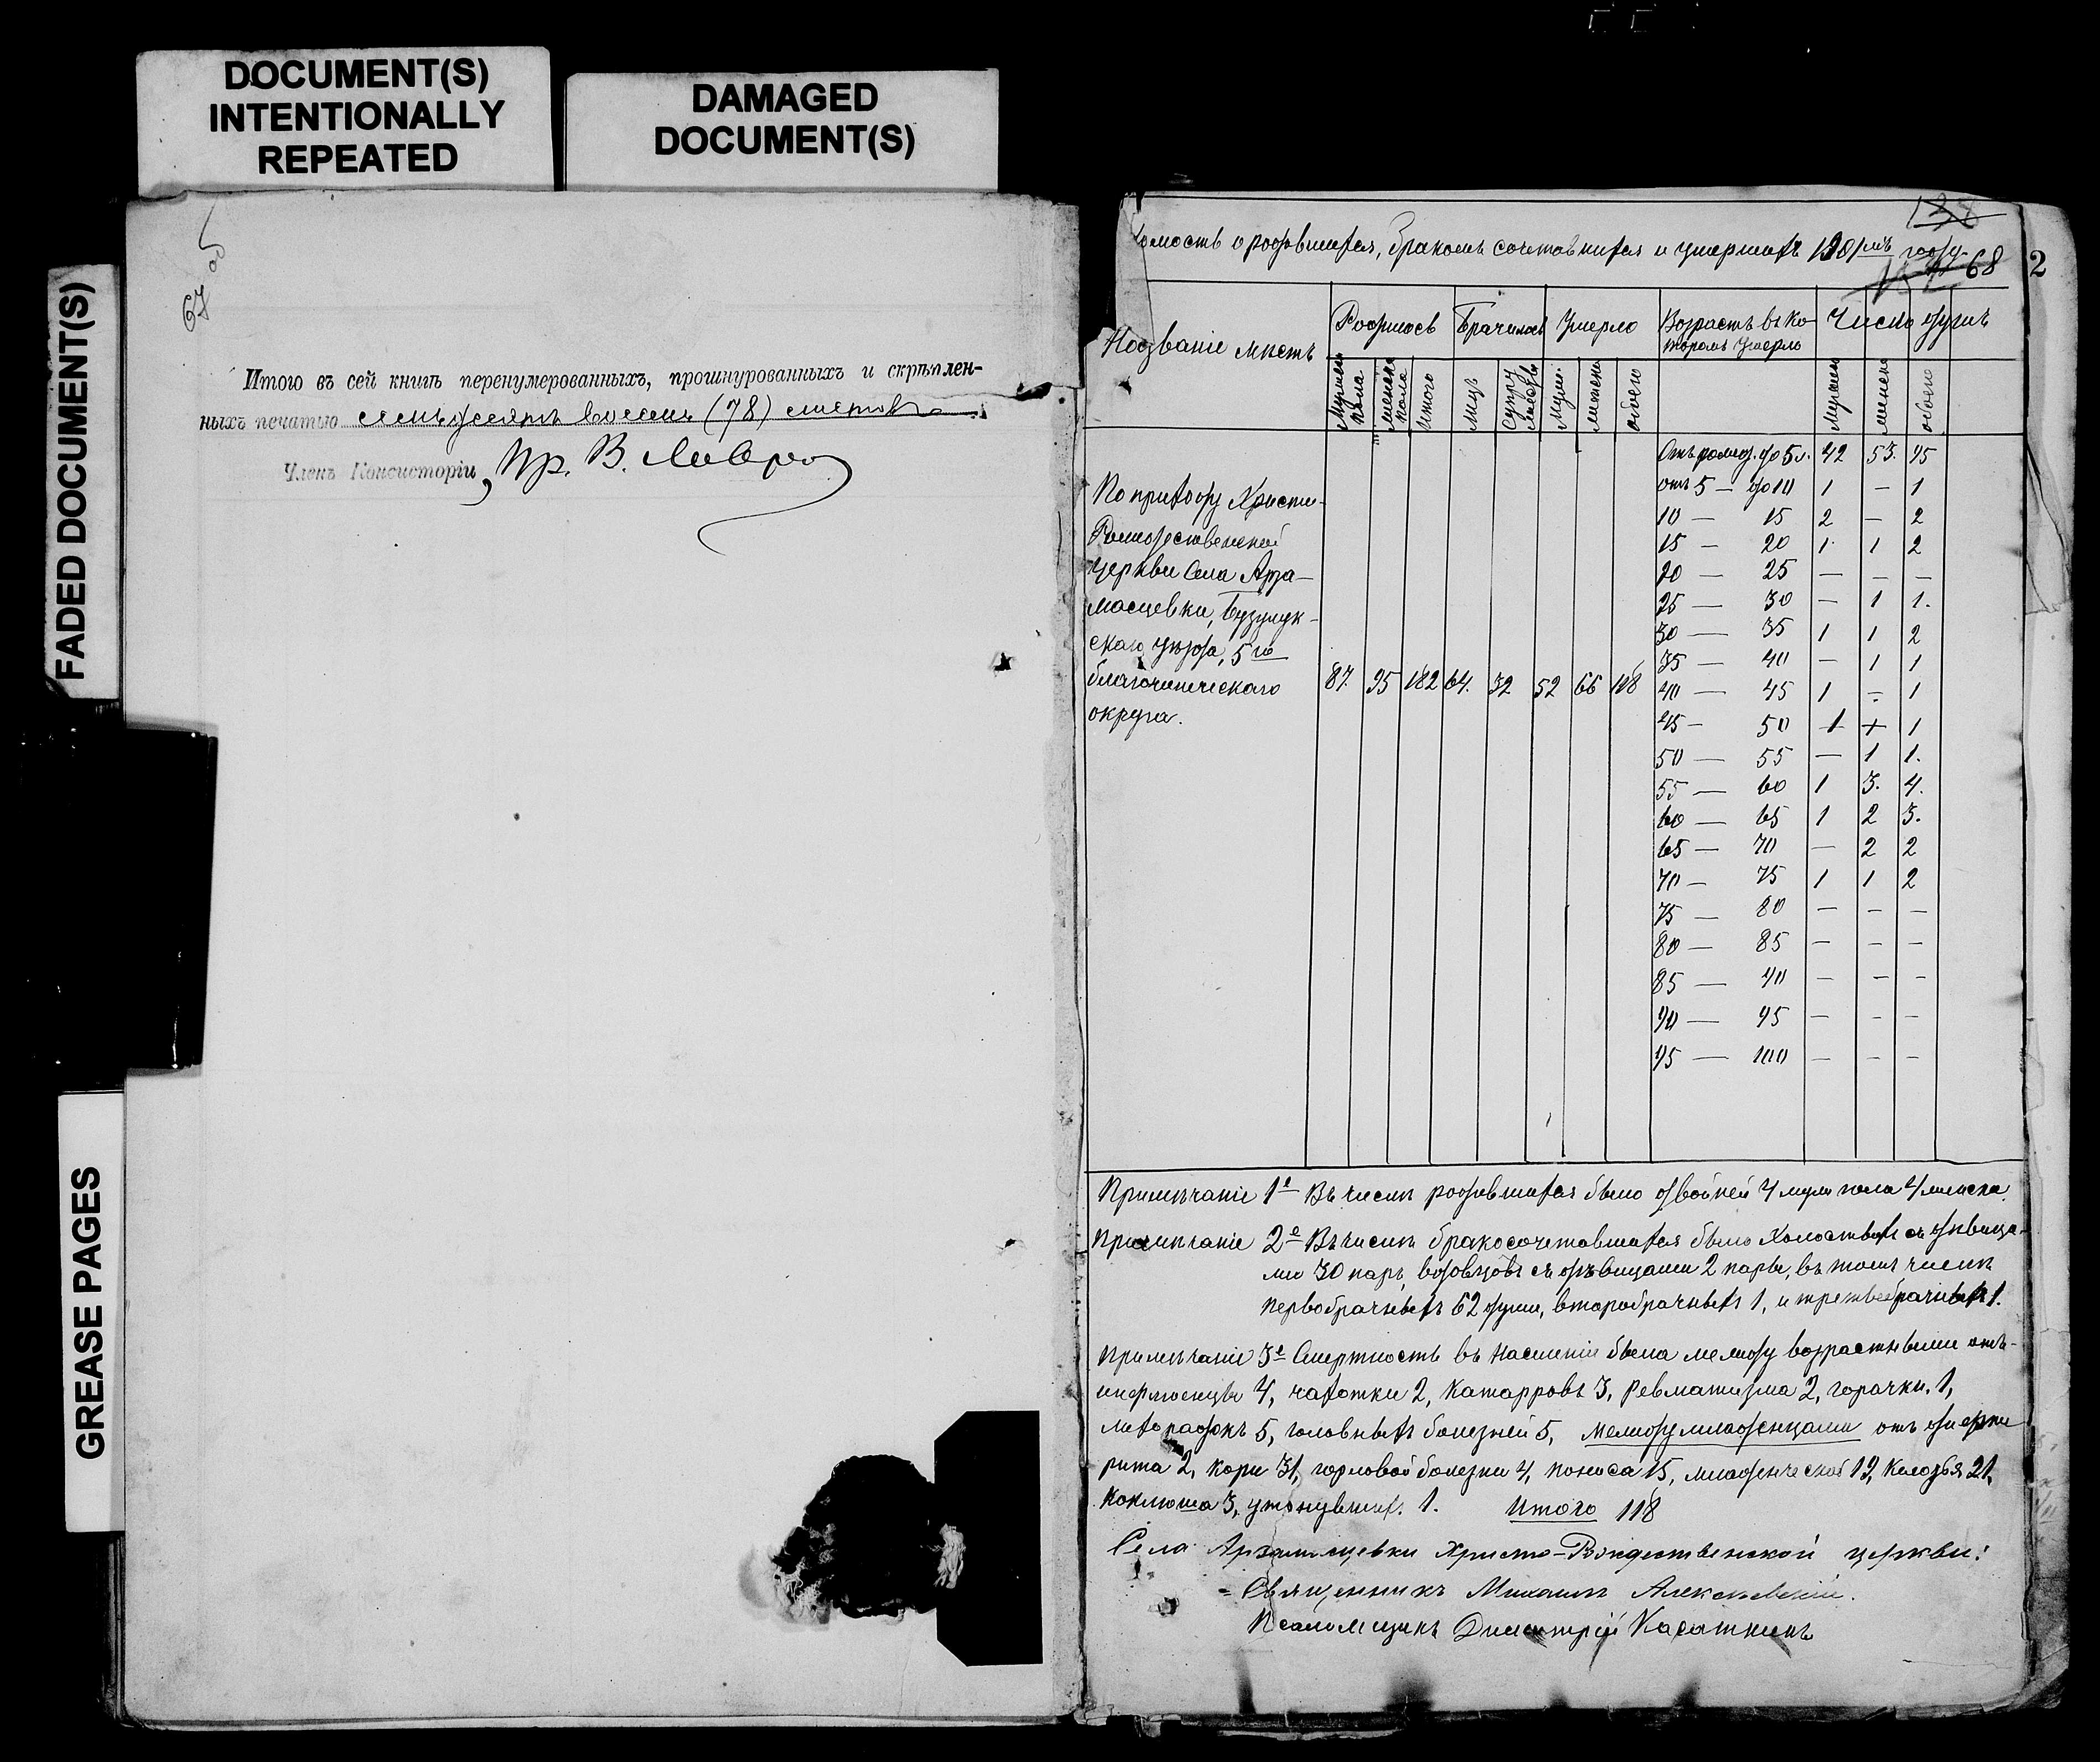 DOCUMENT(S)
INTENTIONALLY
REPEATED
DAMAGED
DOCUMENT(S)
FADED DOCUMENT(S)
GREASE PAGES
67 об
Итого въ сей книгѣ перенумерованныхъ, прошнурованныхъ и скрѣплен-
ныхъ печатью семьдесятъ восемь (78) листовъ
Членъ Консисторіи, Пр. В. Лавро
138
омость о родившихся, бракомъ сочетавшихся и умершихъ 1901мъ году
68
2
Названіе мѣстъ Родилось Брачилось Умерло Возрастъ въ ко- Число душъ
торомъ умерло
Мужеск пола женска пола Итого лицъ супру жествъ муж. женска обоего Мужеск женска обоего
Отъ рожд. до 5 л. 42 53. 95
отъ 5 — до 10 1 — 1
10 — 15 2 — 2
15 — 20 1 1 2
20 — 25 — — —
25 — 30 — 1 1.
30 — 35 1 1 2
35 — 40 — 1 1
40 — 45 1 — 1
45 — 50 1 + 1
50 — 55 — 1 1.
55 — 60 1 3. 4.
60 — 65 1 2 3.
65 — 70 — 2 2
70 — 75 1 1 2
75 — 80 — — —
80 — 85 — — —
85 — 90 — — —
90 — 95 — — —
95 — 100 — — —
По приходу Христо-
Рождественской
церкви села Арза-
масцевки, Бузулук-
скаго уѣзда, 5го
благочинническаго
округа.
87. 95 182 64. 32 52 66 118
Примѣчаніе 1е Въ числѣ родившихся было двойней 4 муж пола 4 женска.
Примѣчаніе 2е Въ числѣ бракосочетавшихся было холостыхъ съ дѣвица-
ми 30 паръ, вдовцовъ съ дѣвицами 2 пары, въ томъ числѣ
первобрачныхъ 62 души, второбрачныхъ 1, и третьебрачныхъ 1.
Примѣчаніе 3е Смертность въ населеніи была между возрастными отъ-
инфлюенцы 4, чахотки 2, катарровъ 3, ревматизма 2, горячки 1,
лихорадокъ 5, головныхъ болезней 5, между младенцами отъ дифте
рита 2, кори 31, горловой болезни 4, поноса 15, младенческой 19, колотья 21,
коклюша 3, утонувших. 1. Итого 118
Села Арзамасцевки Христо-Рождественской церкви:
Священникъ Михаилъ Алексѣевскій.
Псаломщикъ Димитрій Касаткинъ